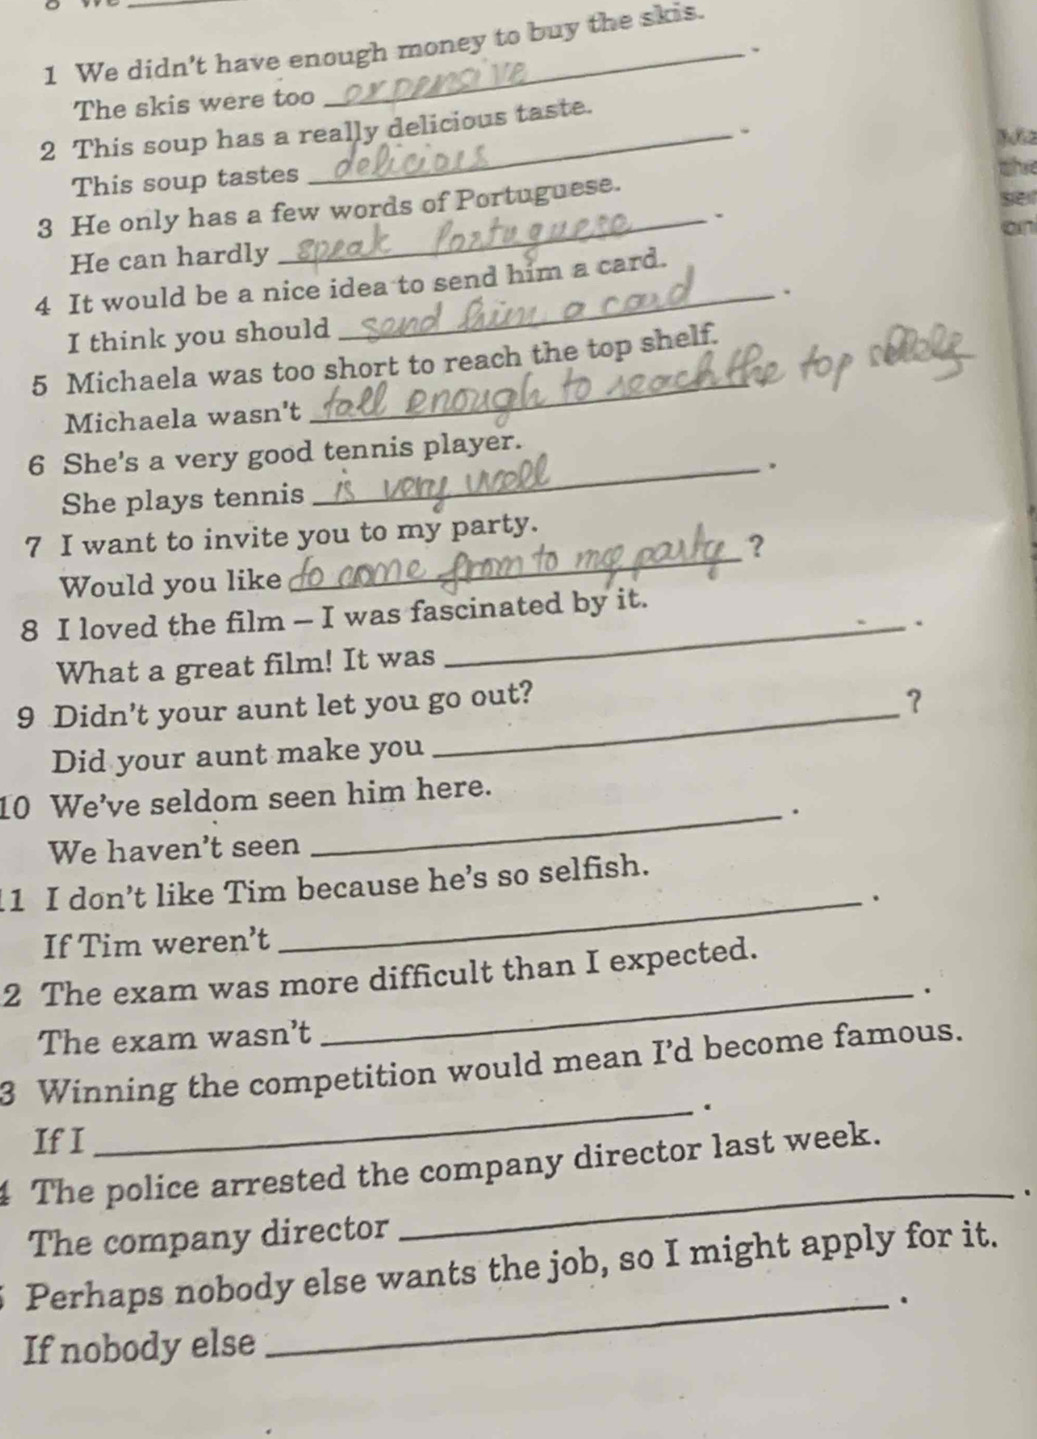 1 We didn't have enough money to buy the skis.
The skis were too expensive .
2 This soup has a really delicious taste.
This soup tastes delicious .
3 He only has a few words of Portuguese.
He can hardly speak Portuguese .
4 It would be a nice idea to send him a card.
I think you should send him a card .
5 Michaela was too short to reach the top shelf.
Michaela wasn't tall enough to reach the top
6 She's a very good tennis player.
She plays tennis is very well .
7 I want to invite you to my party.
Would you like to come from to my party ?
8 I loved the film – I was fascinated by it.
What a great film! It was .
9 Didn't your aunt let you go out?
Did your aunt make you ?
10 We've seldom seen him here.
We haven't seen .
11 I don't like Tim because he's so selfish.
If Tim weren't .
2 The exam was more difficult than I expected.
The exam wasn't .
3 Winning the competition would mean I'd become famous.
If I .
4 The police arrested the company director last week.
The company director .
Perhaps nobody else wants the job, so I might apply for it.
If nobody else .